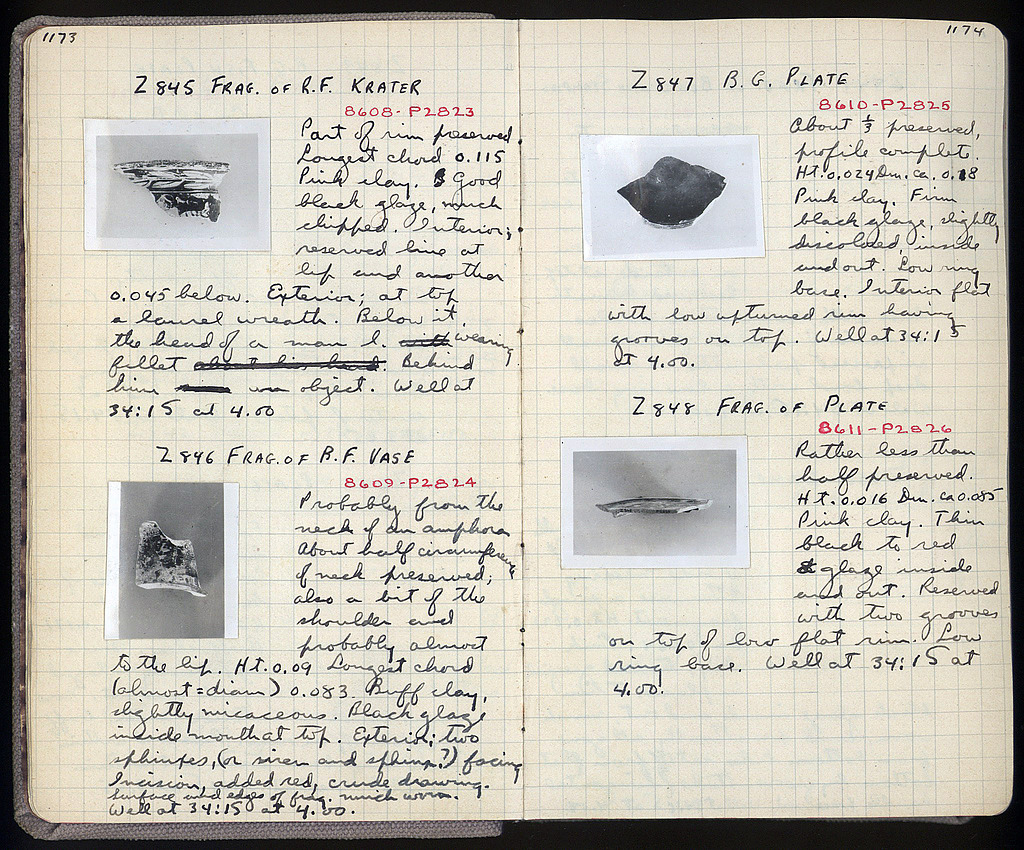 1173
Z 845 FRAG. OF R.F. KRATER
8608-P2823
Part of rim preserved
Longest chord 0.115
Pink clay. Good
black glaze, much
chipped. Interior;
reserved line at
lip and another
0.045 below. Exterior; at top
a laurel wreath. Below it,
the head of a man l. wearing
fillet Behind
him an object. Well at
34:15 at 4.00
Z 846 FRAG. OF B.F. VASE
8609-P2824
Probably from the
neck of an amphora
About half circumference
of neck preserved;
also a bit of the
shoulder and
probably almost
to the lip. Ht. 0.09 Longest chord
(almost = diam) 0.083. Buff clay,
slightly micaceous. Black glaze
inside mouth at top. Exterior; two
sphinxes, (or siren and sphinx?) facing
Incision, added red, crude drawing.
Surface and edges of frag. much worn.
Well at 34:15 at 4.00.
1174
Z 847 B.G. PLATE
8610-P2825
About 1/3 preserved,
profile complete.
Ht. 0.024 Dm. ca. 0.18
Pink clay. Firm
black glaze, slightly
discolored, inside
and out. Low ring
base. Interior flat
with low upturned rim having
grooves on top. Well at 34:15
at 4.00.
Z 848 FRAG. OF PLATE
8611-P2826
Rather less than
half preserved.
Ht. 0.016 Dm. ca 0.085
Pink clay. Thin
black to red
glaze inside
and out. Reserved
with two grooves
on top of low flat rim. Low
ring base. Well at 34:15 at
4.00.